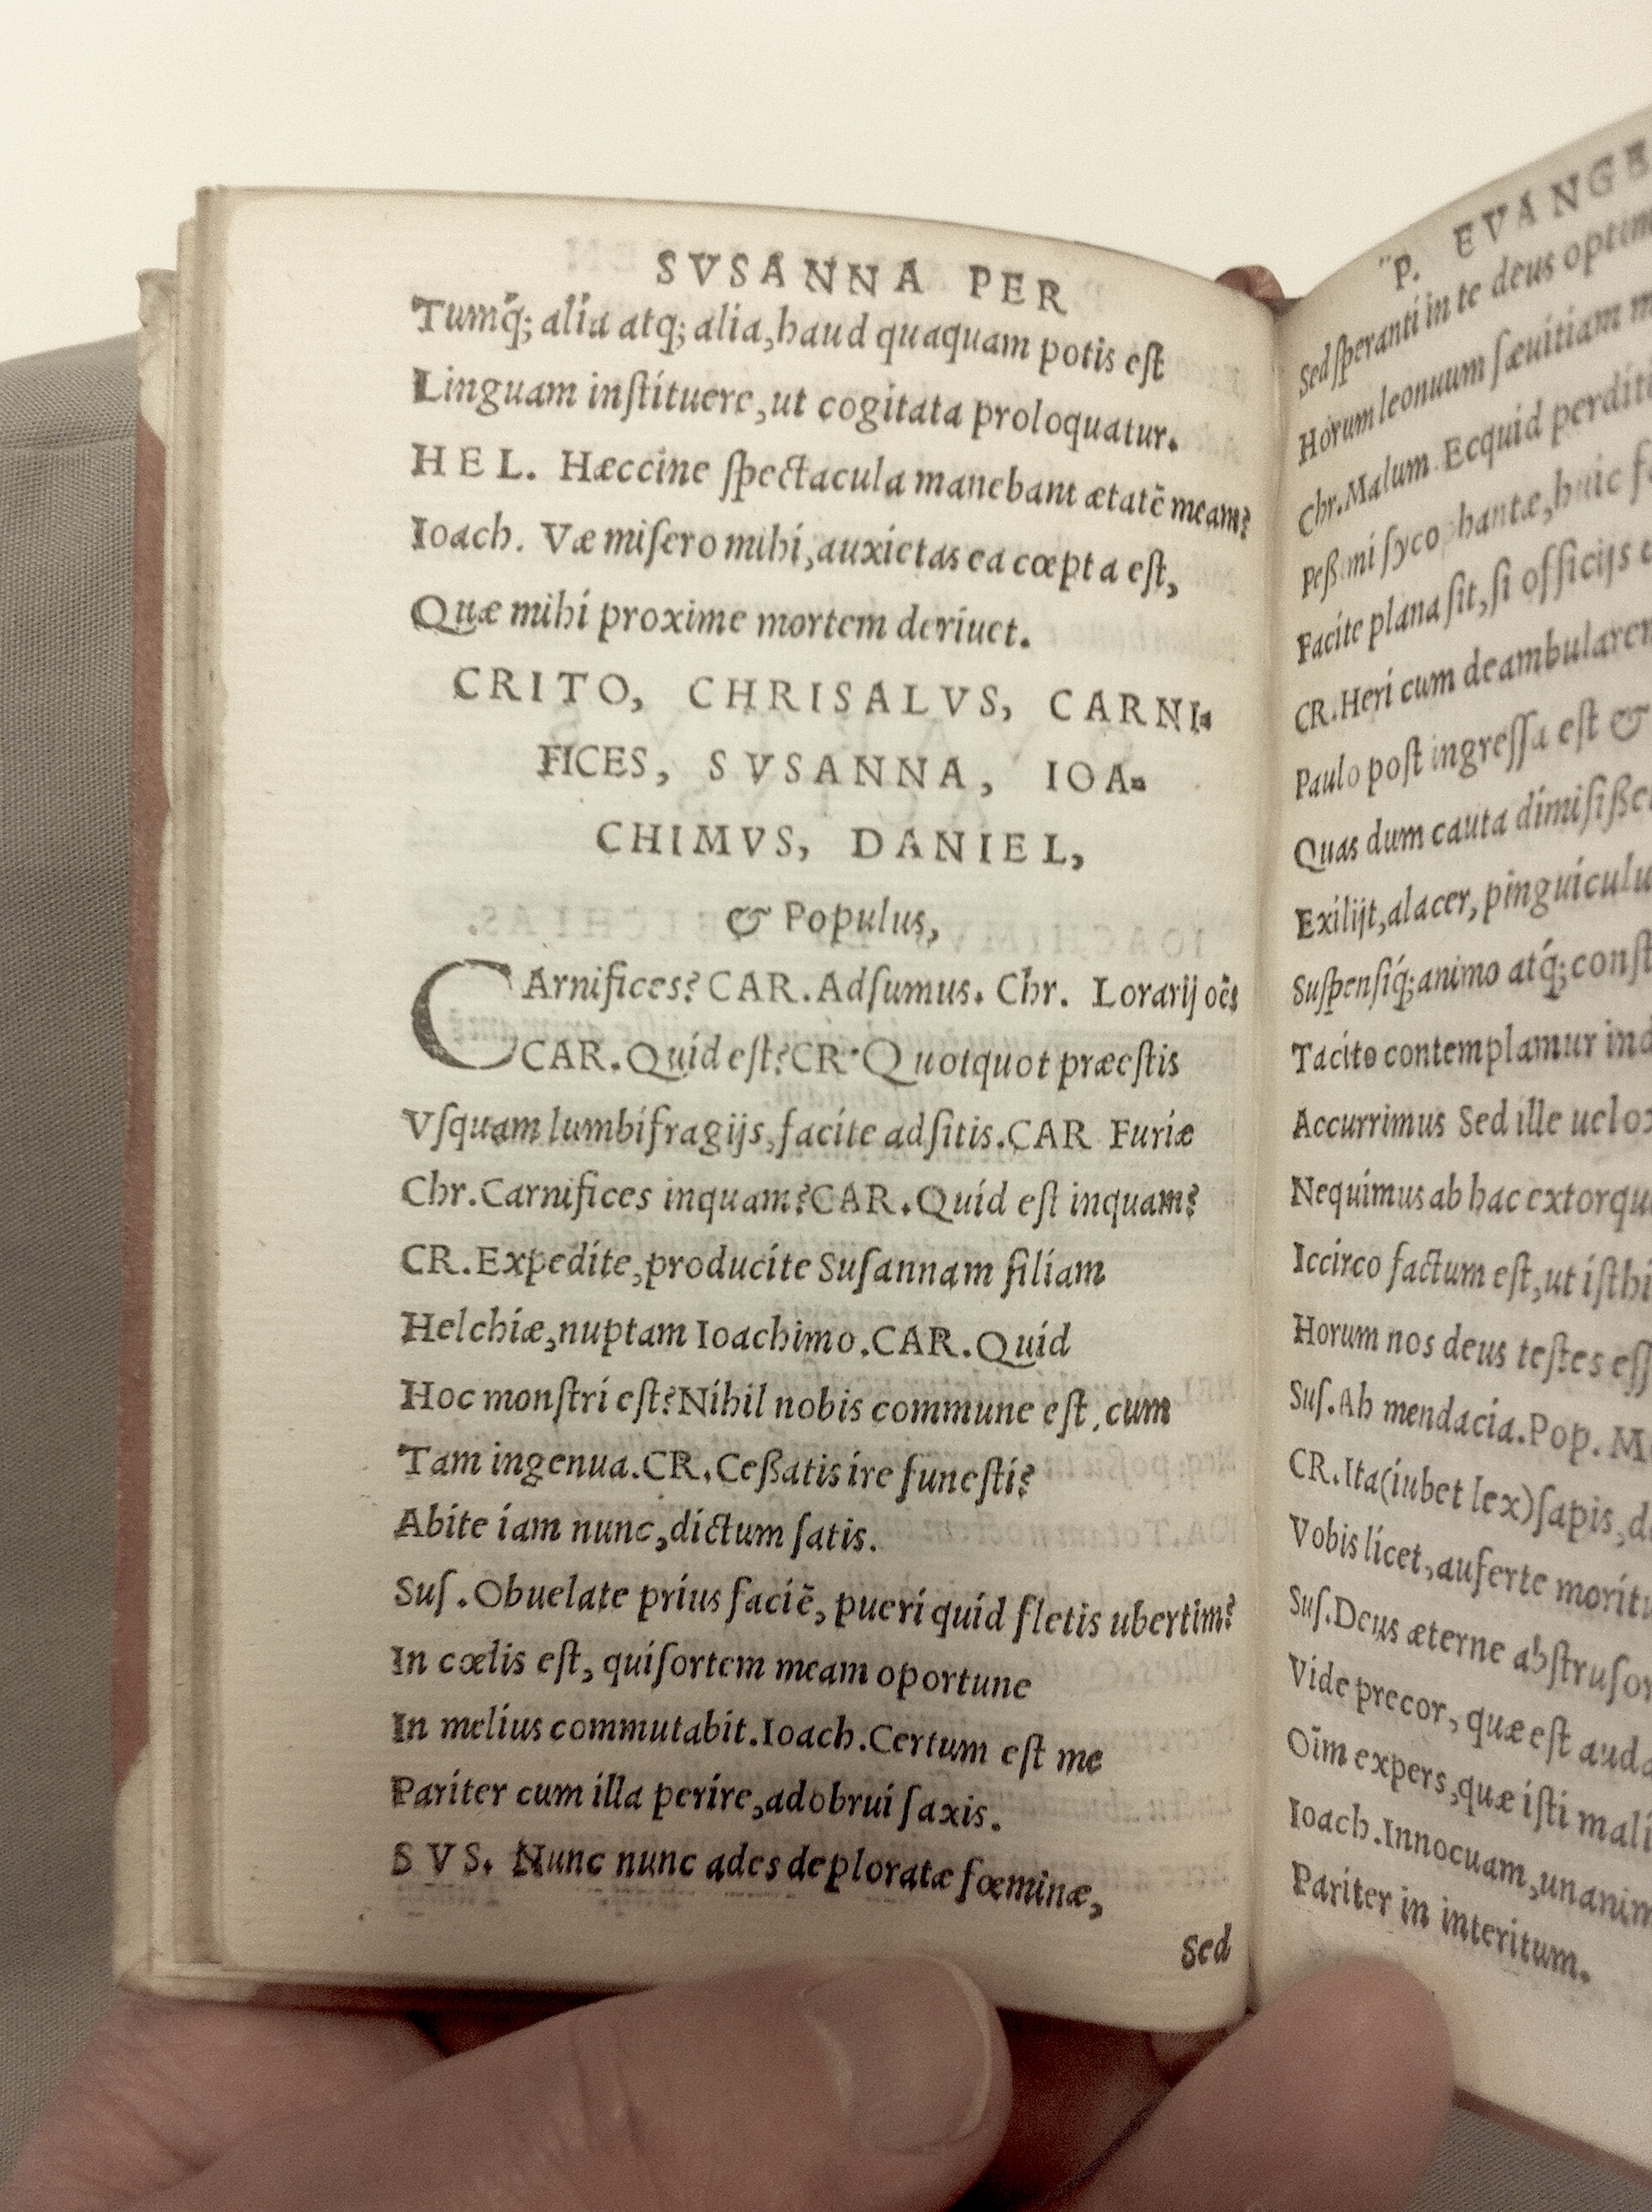 SVSANNA PER
Tumq́; alia atq; alia, haud quaquam potis eſt
Linguam inſtituere, ut cogitata proloquatur.
HEL. Hæccine ſpectacula manebant ætatē meam?
Ioach. Væ miſero mihi, auxietas ea cœpta eſt,
Quæ mihi proxime mortem deriuet.
CRITO, CHRISALVS, CARNI-
FICES, SVSANNA, IOA-
CHIMVS, DANIEL,
& Populus,
CArnifices? CAR. Adſumus. Chr. Lorarij oēs
CAR. Quid eſt? CR. Quotquot præeſtis
Vſquam lumbifragijs, facite adſitis. CAR Furiæ
Chr. Carnifices inquam? CAR. Quid eſt inquam?
CR. Expedite, producite Suſannam filiam
Helchiæ, nuptam Ioachimo. CAR. Quid
Hoc monſtri eſt? Nihil nobis commune eſt, cum
Tam ingenua. CR. Ceßatis ire funeſti?
Abite iam nunc, dictum ſatis.
Suſ. Obuelate prius faciē, pueri quid fletis ubertim?
In cœlis eſt, qui ſortem meam oportune
In melius commutabit. Ioach. Certum eſt me
Pariter cum illa perire, adobrui ſaxis.
SVS. Nunc nunc ades deploratæ fœminæ,
Sed
P. EVANGE
Sed ſperanti in te deus optim
Horum leonuum ſæuitiam
Chr. Malum. Ecquid perditi
Peßimi ſycophantæ, huic
Facite plana ſit, ſi officijs
CR. Heri cum deambularem
Paulo poſt ingreſſa eſt &
Quas dum cauta dimiſiße
Exilijt, alacer, pinguiculu
Suſpenſiq́; animo atq́; conſt
Tacito contemplamur ind
Accurrimus Sed ille uelo
Nequimus ab hac extorqu
Iccirco factum eſt, ut iſthi
Horum nos deus teſtes eſſ
Suſ. Ah mendacia. Pop. M
CR. Ita (iubet lex) ſapis, d
Vobis licet, auferte moritu
Suſ. Deus æterne abſtruſor
Vide precor, quæ eſt auda
Oīm expers, quæ iſti mali
Ioach. Innocuam, unanim
Pariter in interitum.